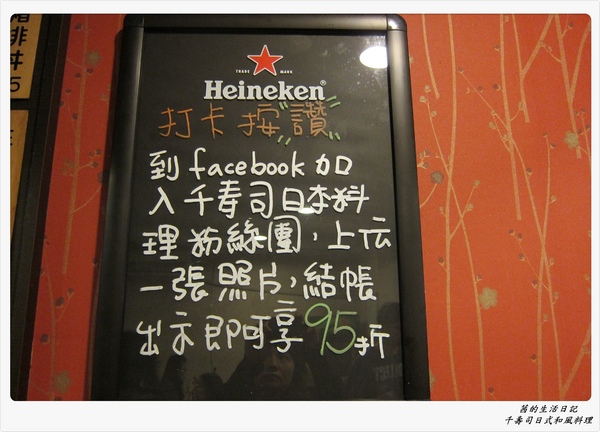 豬排丼
5
TRADE MARK
Heineken®
打卡按讚
到facebook加
入千寿司日本料
理粉絲團,上云
一張照片,結帳
出示即可享95折
茜的生活日記
千壽司日式和風料理